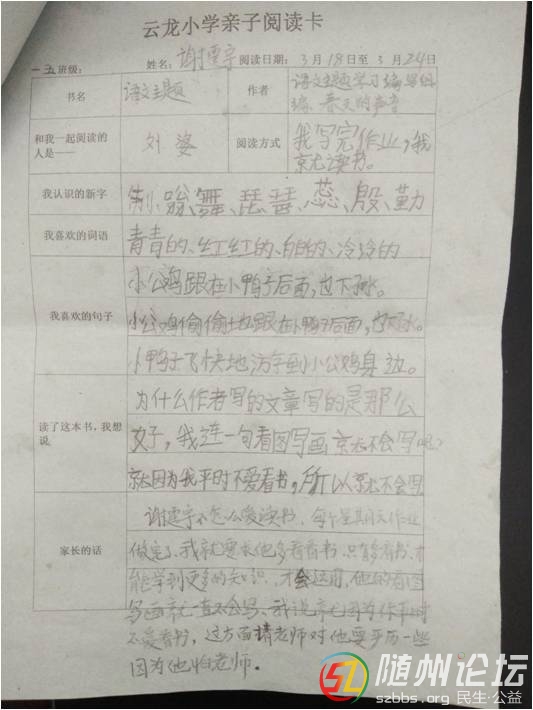 云龙小学亲子阅读卡
一五班级： 姓名：谢霆宇 阅读日期：3月18日至3月24日
书名 语文主题 作者 语文主题学习编写组
编、春天的声音
和我一起阅读的
人是—— 外婆 阅读方式 我写完作业，我
就读书。
我认识的新字 制、嗡、舞、琵、琶、蕊、殷、勤
我喜欢的词语 青青的、红红的、白白的、冷冷的
小公鸡跟在小鸭子后面，也下水。
我喜欢的句子 小公鸡偷偷地跟在小鸭子后面，也下水。
小鸭子飞快地游到小公鸡身边。
为什么作者写的文章写的是那么
读了这本书，我想
说 好，我连一句看图写画就不会写呢？
就因为我平时不爱看书，所以就不会写
谢霆宇不怎么爱读书，每个星期天作业
家长的话 做完了，我就要求他多看看书，只有多看书，才
能学到更多的知识，才会运用，他的看图
写画就一直不会写、我说就是因为你平时
不爱看书，这方面请老师对他要严厉一些
因为他怕老师。
随州论坛
szbbs.org 民生·公益